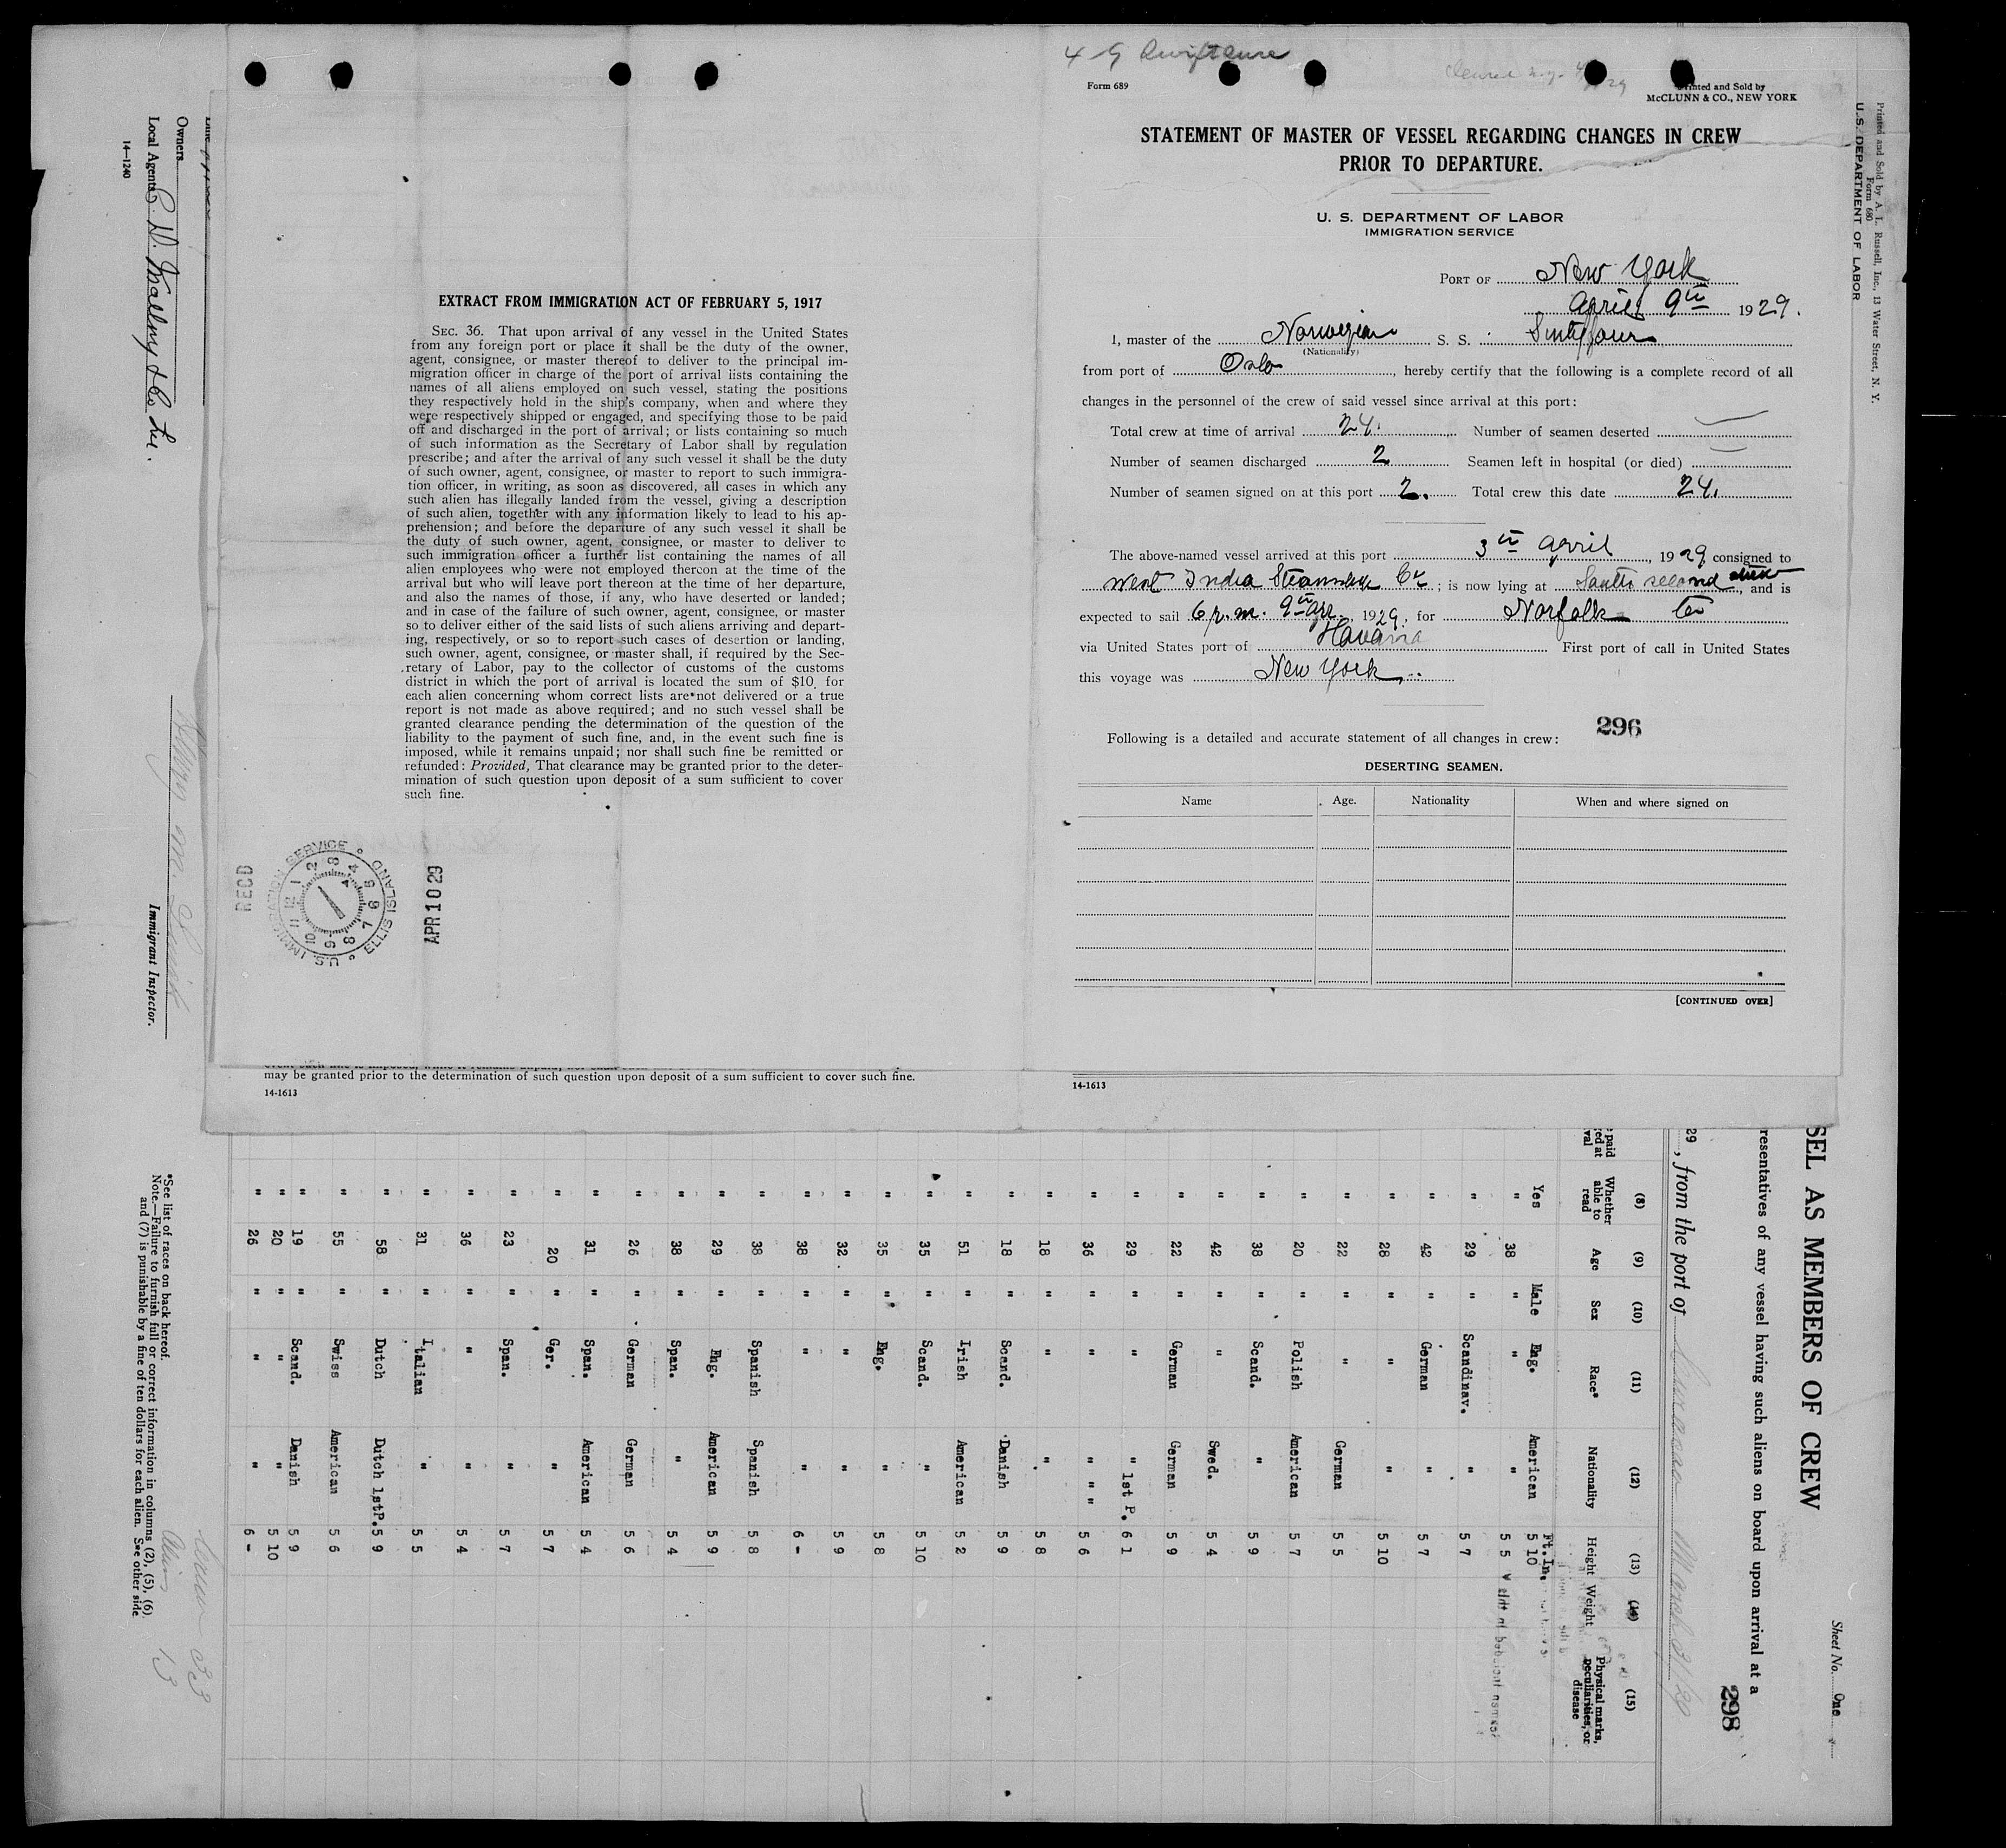 4-9
Form 689
Printed and Sold by
McCLUNN & CO., NEW YORK
STATEMENT OF MASTER OF VESSEL REGARDING CHANGES IN CREW
PRIOR TO DEPARTURE.
U. S. DEPARTMENT OF LABOR
IMMIGRATION SERVICE
PORT OF New York
April 9th 1929.
I, master of the Norwegian S. S.
(Nationality)
from port of Oslo, hereby certify that the following is a complete record of all
changes in the personnel of the crew of said vessel since arrival at this port:
Total crew at time of arrival 24. Number of seamen deserted —
Number of seamen discharged 2 Seamen left in hospital (or died) —
Number of seamen signed on at this port 2. Total crew this date 24.
The above-named vessel arrived at this port 3th April, 1929 consigned to
West India Steamship Co; is now lying at second, and is
expected to sail 6 p.m. 9th Apr. 1929, for Norfolk
via United States port of Havana First port of call in United States
this voyage was New York.
296
Following is a detailed and accurate statement of all changes in crew:
DESERTING SEAMEN.
Name Age. Nationality When and where signed on
[CONTINUED OVER]
14-1613
EXTRACT FROM IMMIGRATION ACT OF FEBRUARY 5, 1917
SEC. 36. That upon arrival of any vessel in the United States
from any foreign port or place it shall be the duty of the owner,
agent, consignee, or master thereof to deliver to the principal im-
migration officer in charge of the port of arrival lists containing the
names of all aliens employed on such vessel, stating the positions
they respectively hold in the ship's company, when and where they
were respectively shipped or engaged, and specifying those to be paid
off and discharged in the port of arrival; or lists containing so much
of such information as the Secretary of Labor shall by regulation
prescribe; and after the arrival of any such vessel it shall be the duty
of such owner, agent, consignee, or master to report to such immigra-
tion officer, in writing, as soon as discovered, all cases in which any
such alien has illegally landed from the vessel, giving a description
of such alien, together with any information likely to lead to his ap-
prehension; and before the departure of any such vessel it shall be
the duty of such owner, agent, consignee, or master to deliver to
such immigration officer a further list containing the names of all
alien employees who were not employed thereon at the time of the
arrival but who will leave port thereon at the time of her departure,
and also the names of those, if any, who have deserted or landed;
and in case of the failure of such owner, agent, consignee, or master
so to deliver either of the said lists of such aliens arriving and depart-
ing, respectively, or so to report such cases of desertion or landing,
such owner, agent, consignee, or master shall, if required by the Sec-
retary of Labor, pay to the collector of customs of the customs
district in which the port of arrival is located the sum of $10 for
each alien concerning whom correct lists are not delivered or a true
report is not made as above required; and no such vessel shall be
granted clearance pending the determination of the question of the
liability to the payment of such fine, and, in the event such fine is
imposed, while it remains unpaid; nor shall such fine be remitted or
refunded: Provided, That clearance may be granted prior to the deter-
mination of such question upon deposit of a sum sufficient to cover
such fine.
RECD
U.S. IMMIGRATION SERVICE ELLIS ISLAND
1 2 3 4 5 6 7 8 9 10 11 12
APR 10 29
may be granted prior to the determination of such question upon deposit of a sum sufficient to cover such fine.
14-1613
Printed and Sold by A. L. Russell, Inc., 13 Water Street, N. Y.
Form 680
U.S. DEPARTMENT OF LABOR
Sheet No. One
SEL AS MEMBERS OF CREW
resentatives of any vessel having such aliens on board upon arrival at a
298
29, from the port of March 31/29
(8) (9) (10) (11) (12) (13) (14) (15)
Whether able to read Age Sex Race* Nationality Height Weight Physical marks, peculiarities, or disease
Ft. In.
Yes Male Eng. American 5 10
" 38 " " " 5 5
" 29 " Scandinav. " 5 7
" 42 " German " 5 7
" 28 " " " 5 10
" 22 " " German 5 5
" 20 " Polish American 5 7
" 38 " Scand. " 5 9
" 42 " " Swed. 5 4
" 22 " German German 5 9
" 29 " " " 1st P. 6 1
" 36 " " " " " 5 6
" 18 " " " 5 8
" 18 " Scand. Danish 5 9
" 51 " Irish American 5 2
" 35 " Scand. " 5 10
" 35 " Eng. " 5 8
" 32 " " " 5 9
" 38 " " " 6 -
" 38 " Spanish Spanish 5 8
" 29 " Eng. American 5 9
" 38 " Span. " 5 4
" 26 " German German 5 6
" 31 " Span. American 5 4
" 20 " Ger. " 5 7
" 23 " Span. " 5 7
" 36 " " " 5 4
" 31 " Italian " 5 5
" 58 " Dutch Dutch 1st P. 5 9
" 55 " Swiss American 5 6
" 19 " Scand. Danish 5 9
" 20 " " " 5 10
" 26 " " " 6 -
Owners
Local Agents
14-1240
Immigrant Inspector.
*See list of races on back hereof.
Note.—Failure to furnish full or correct information in columns (2), (5), (6)
and (7) is punishable by a fine of ten dollars for each alien. See other side
33
13